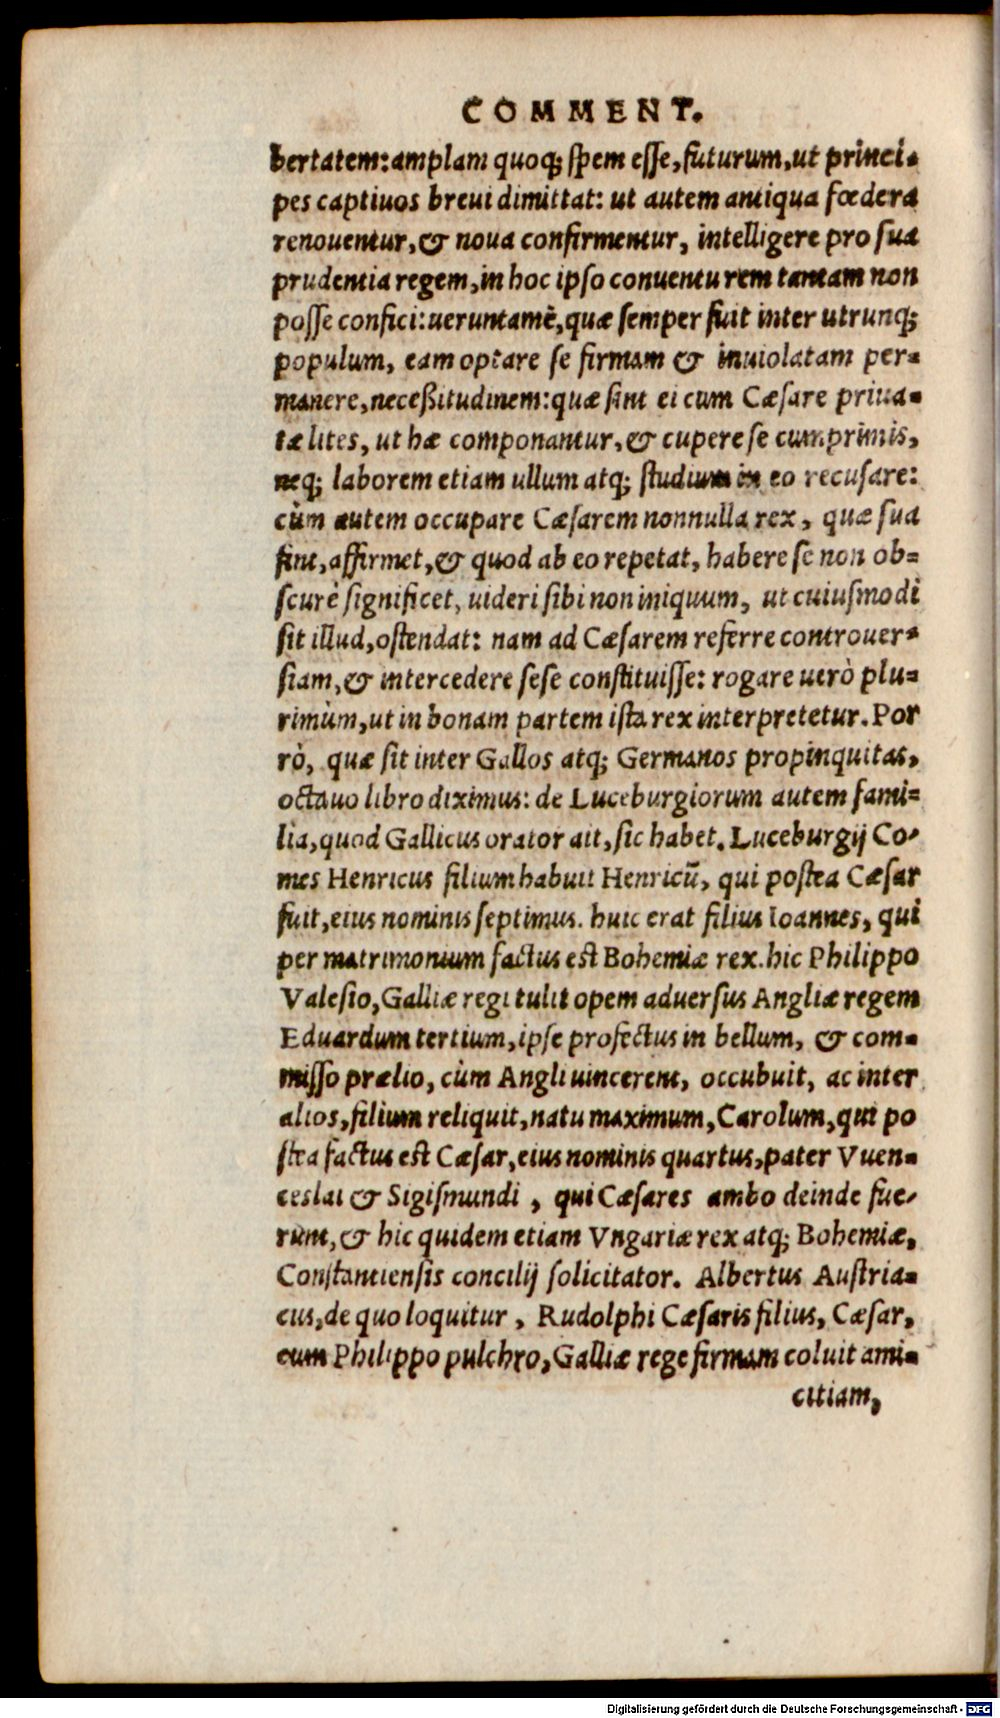 COMMENT.
bertatem: amplam quoq; spem esse, futurum, ut princi-
pes captiuos breui dimittat: ut autem antiqua fœdera
renouentur, & noua confirmentur, intelligere pro sua
prudentia regem, in hoc ipso conuentu rem tantam non
posse confici: ueruntamẽ, quæ semper fuit inter utrunq;
populum, eam optare se firmam & inuiolatam per-
manere, neceßitudinem: quæ sint ei cum Cæsare priua-
tæ lites, ut hæ componantur, & cupere se cum primis,
neq; laborem etiam ullum atq; studium in eo recusare:
cùm autem occupare Cæsarem nonnulla rex, quæ sua
sint, affirmet, & quod ab eo repetat, habere se non ob-
scurè significet, uideri sibi non iniquum, ut cuiusmodi
sit illud, ostendat: nam ad Cæsarem referre controuer-
siam, & intercedere sese constituisse: rogare uerò plu-
rimùm, ut in bonam partem ista rex interpretetur. Por
rò, quæ sit inter Gallos atq; Germanos propinquitas,
octauo libro diximus: de Luceburgiorum autem fami-
lia, quod Gallicus orator ait, sic habet. Luceburgij Co-
mes Henricus filium habuit Henricũ, qui postea Cæsar
fuit, eius nominis septimus. huic erat filius Ioannes, qui
per matrimonium factus est Bohemiæ rex. hic Philippo
Valesio, Galliæ regi tulit opem aduersus Angliæ regem
Eduardum tertium, ipse profectus in bellum, & com-
misso prælio, cùm Angli uincerent, occubuit, ac inter
alios, filium reliquit, natu maximum, Carolum, qui po
stea factus est Cæsar, eius nominis quartus, pater Vuen-
ceslai & Sigismundi, qui Cæsares ambo deinde fue-
runt, & hic quidem etiam Vngariæ rex atq; Bohemiæ,
Constantiensis concilij solicitator. Albertus Austria-
cus, de quo loquitur, Rudolphi Cæsaris filius, Cæsar,
cum Philippo pulchro, Galliæ rege firmam coluit ami-
citiam,
Digitalisierung gefördert durch die Deutsche Forschungsgemeinschaft - DFG